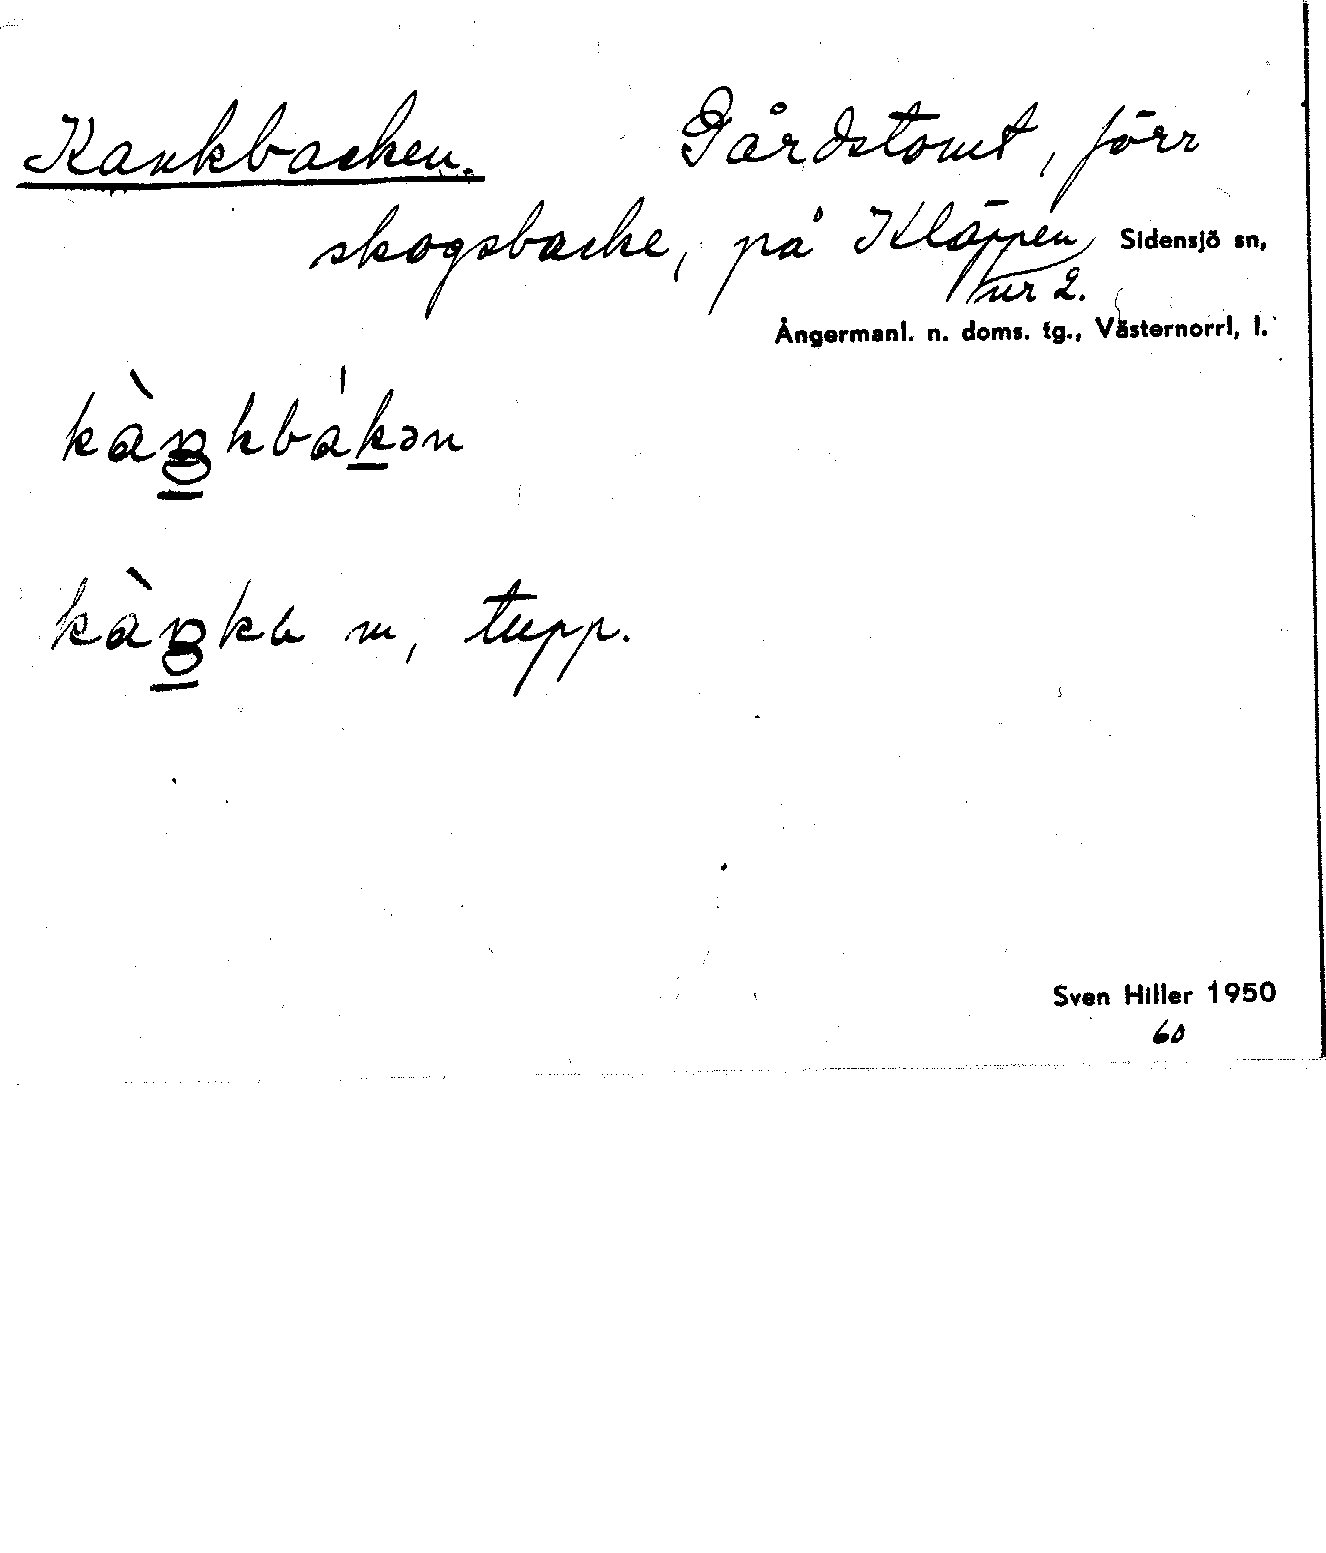 Kankbacken. Gårdstomt, förr
skogsbacke, på Kläppen Sidensjö sn,
nr 2.
Ångermanl. n. doms. tg., Västernorrl, l.
kàŋkbákən
kàŋka m, tupp.
Sven Hiller 1950
60